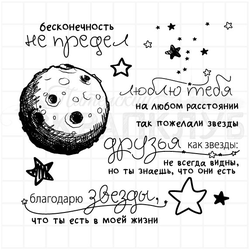 бесконечность
не предел
люблю тебя
на любом расстоянии
так пожелали звезды
друзья как звезды:
не всегда видны,
но ты знаешь, что они есть
благодарю звезды,
что ты есть в моей жизни